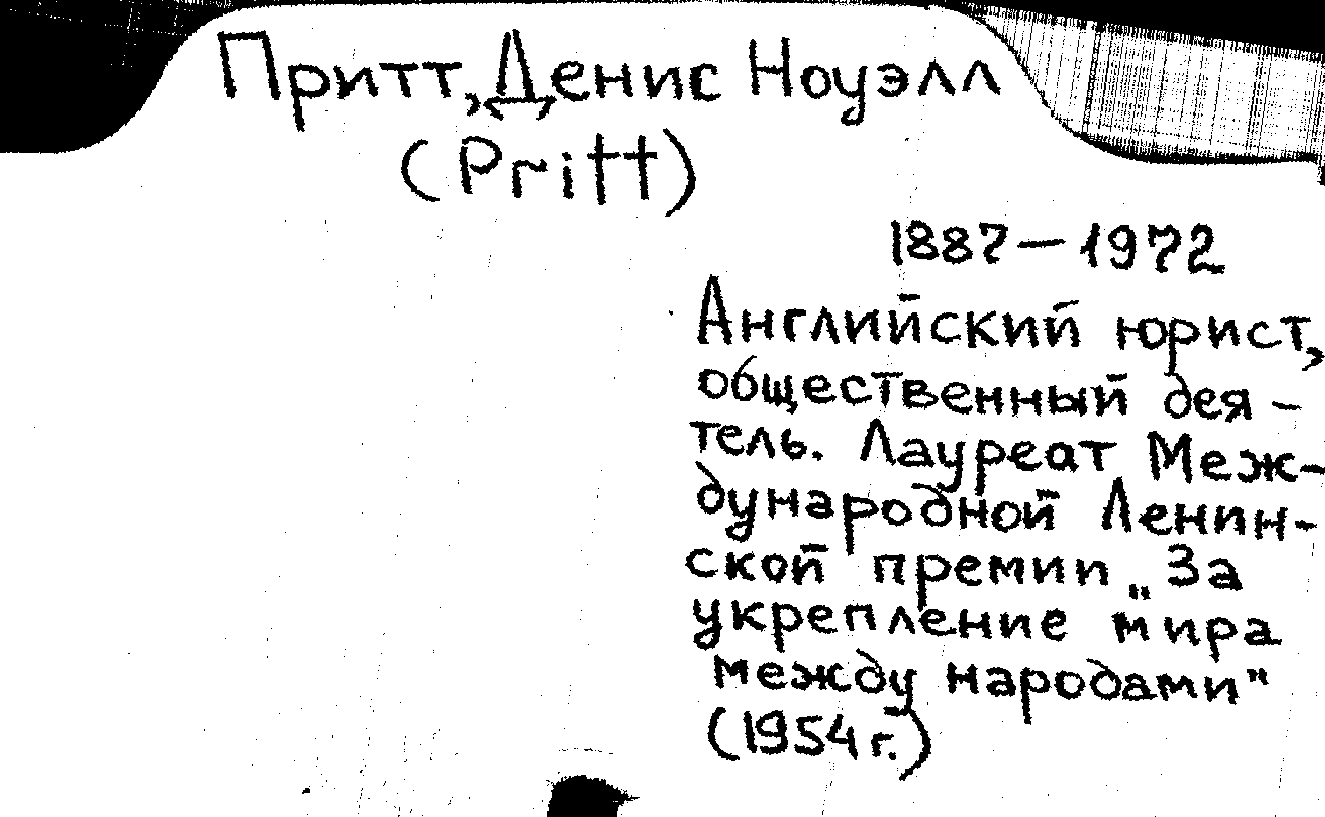 Притт, Денис Ноуэлл
(Pritt)
1887 – 1972
Английский юрист,
общественный дея -
тель. Лауреат Меж-
дународной Ленин-
ской премии „За
укрепление мира
между народами"
(1954 г.)